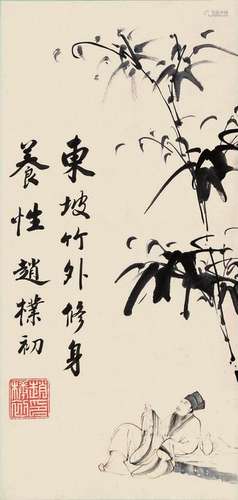 東坡竹外修身
養性趙樸初